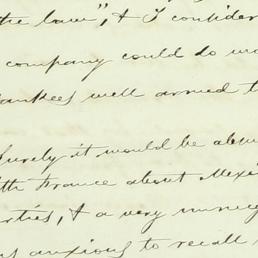 the law", & I consider
company could do
Yankees well armed t
Surely it would be absu
ith France about Mexi
rties, & a very unneces
s anxious to recall